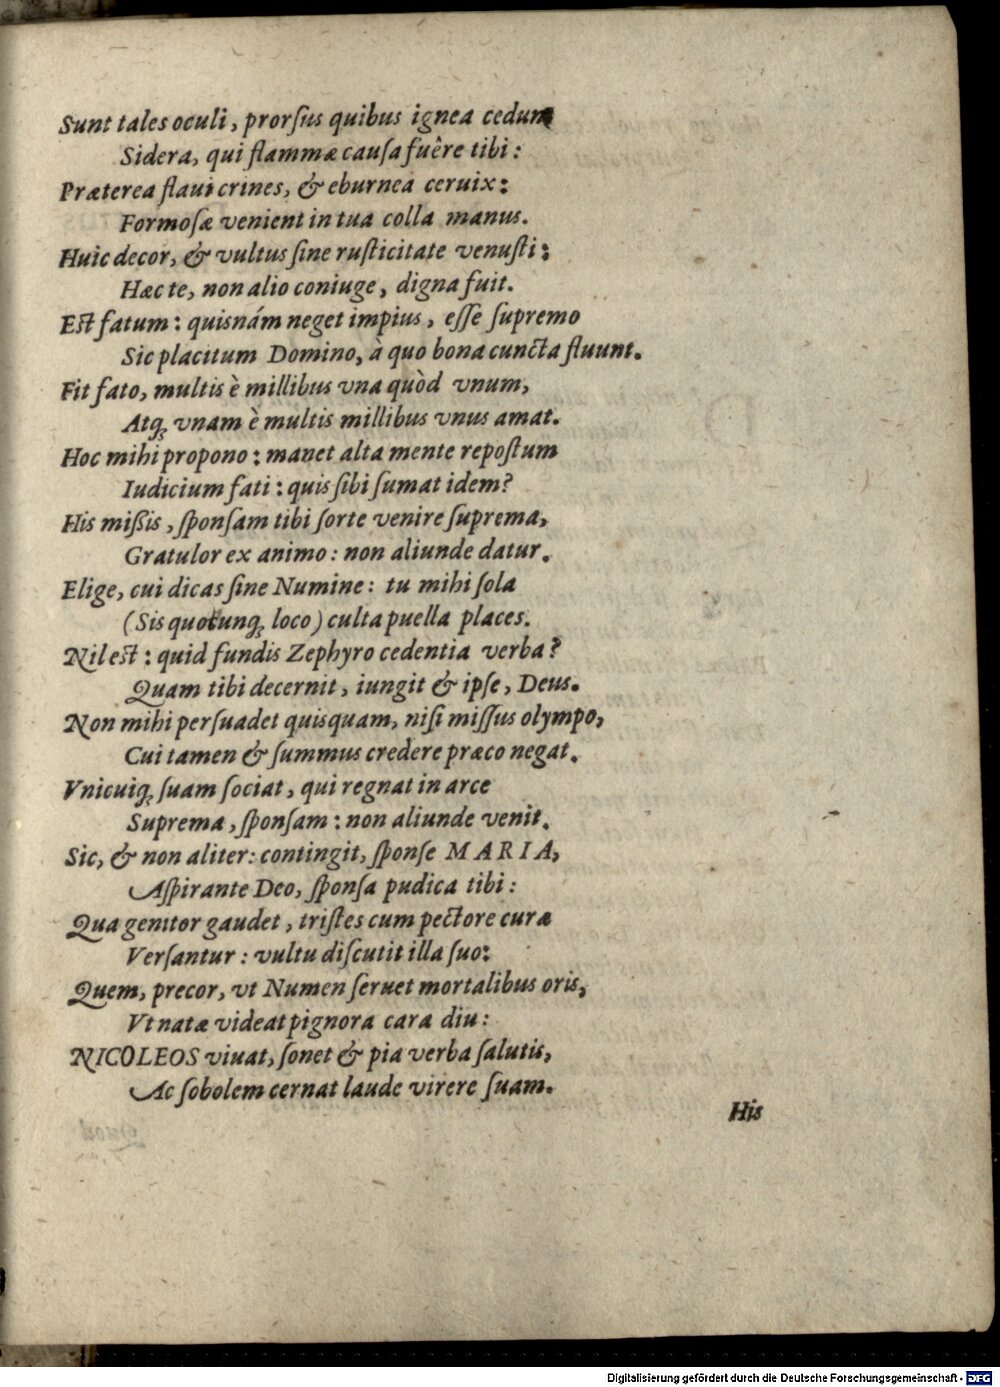 Sunt tales oculi, prorſus quibus ignea cedunt
Sidera, qui flammæ cauſa fuêre tibi:
Præterea flaui crines, & eburnea ceruix:
Formoſæ venient in tua colla manus.
Huic decor, & vultus ſine ruſticitate venuſti:
Hæc te, non alio coniuge, digna fuit.
Eſt fatum: quisnám neget impius, eſſe ſupremo
Sic placitum Domino, à quo bona cuncta fluunt.
Fit fato, multis è millibus vna quòd vnum,
Atq; vnam è multis millibus vnus amat.
Hoc mihi propono: manet alta mente repoſtum
Iudicium fati: quis ſibi ſumat idem?
His mißis, ſponſam tibi ſorte venire ſuprema,
Gratulor ex animo: non aliunde datur.
Elige, cui dicas ſine Numine: tu mihi ſola
(Sis quocunq; loco) culta puella places.
Nil eſt: quid fundis Zephyro cedentia verba?
Quam tibi decernit, iungit & ipſe, Deus.
Non mihi perſuadet quisquam, niſi miſſus olympo,
Cui tamen & ſummus credere præco negat.
Vnicuiq; ſuam ſociat, qui regnat in arce
Suprema, ſponſam: non aliunde venit.
Sic, & non aliter: contingit, ſponſe MARIA,
Aſpirante Deo, ſponſa pudica tibi:
Qua genitor gaudet, triſtes cum pectore curæ
Verſantur: vultu diſcutit illa ſuo:
Quem, precor, vt Numen ſeruet mortalibus oris,
Vt natæ videat pignora cara diu:
NICOLEOS viuat, ſonet & pia verba ſalutis,
Ac ſobolem cernat laude virere ſuam.
His
Digitalisierung gefördert durch die Deutsche Forschungsgemeinschaft - DFG